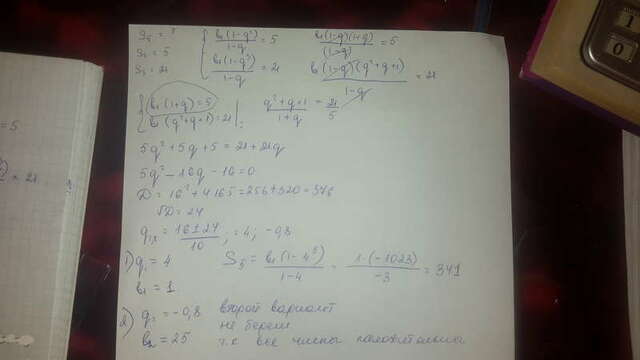 S₅ = ?
S₂ = 5
S₃ = 21
{ b₁(1-q²)/1-q = 5
b₁(1-q³)/1-q = 21
b₁(1-q)(1+q)/(1-q) = 5
b₁(1-q)(q²+q+1)/1-q = 21
{ b₁(1+q) = 5
b₁(q²+q+1) = 21
q²+q+1/1+q = 21/5
5q²+5q+5 = 21+21q
5q²-16q-16=0
D = 16²+4·16·5=256+320=576
√D = 24
q₁,₂ = 16±24/10 ; = 4; -0,8
1) q₁ = 4
b₁ = 1
S₅ = b₁(1-4⁵)/1-4 = 1·(-1023)/-3 = 341
2) q₂ = -0,8 второй вариант
не берем
b₂ = 25 т.к все члены положительны
= 5
= 21
1
0